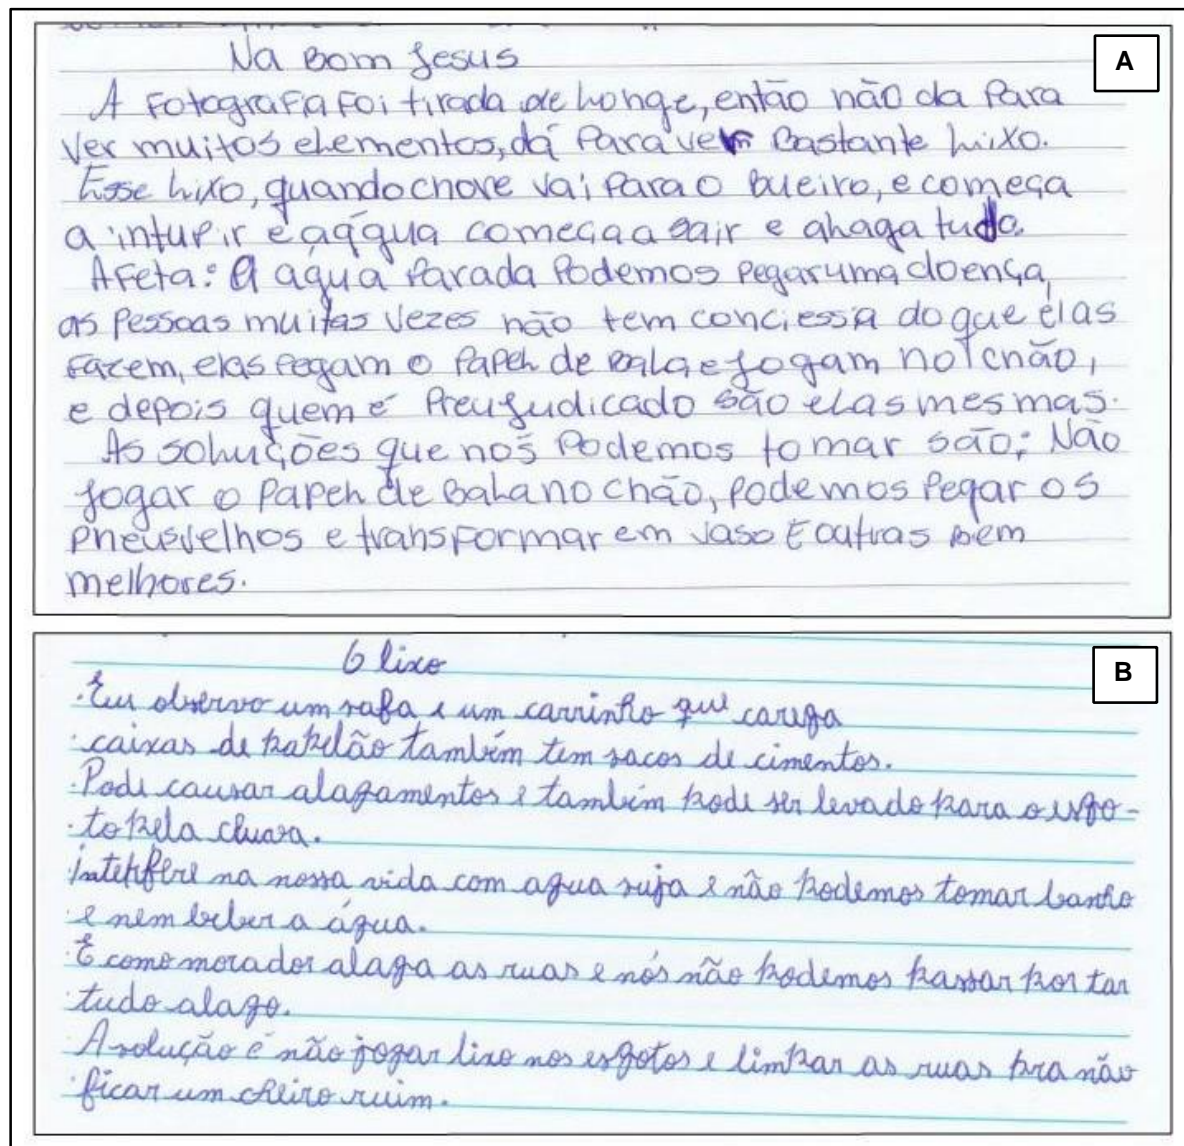 Na Bom Jesus
A
A Fotografia Foi tirada de longe, então não da Para
ver muitos elementos, dá Para ver Bastante lixo.
Esse lixo, quando chove vai Para o bueiro, e começa
a intupir e a água começa a sair e alaga tudo.
Afeta: A água Parada Podemos pegar uma doença,
as Pessoas muitas vezes não tem conciessia do que elas
Fazem, elas pegam o Papel de bala e jogam no chão,
e depois quem é Preujudicado são elas mesmas.
As soluções que nos Podemos tomar são: Não
jogar o Papel de Bala no chão, Podemos Pegar os
Pneus velhos e transformar em vaso E outras bem
melhores.
O lixo
B
Eu observo um safa e um carrinho que carega
caixas de papelão também tem sacos de cimentos.
Pode causar alagamentos e também pode ser levado para o esgo-
to pela chuva.
na nossa vida com agua suja e não podemos tomar banho
e nem beber a água.
E como morador alaga as ruas e nós não podemos passar por tar
tudo alago.
A solução é não jogar lixo nos esgotos e limpar as ruas pra não
ficar um cheiro ruim.